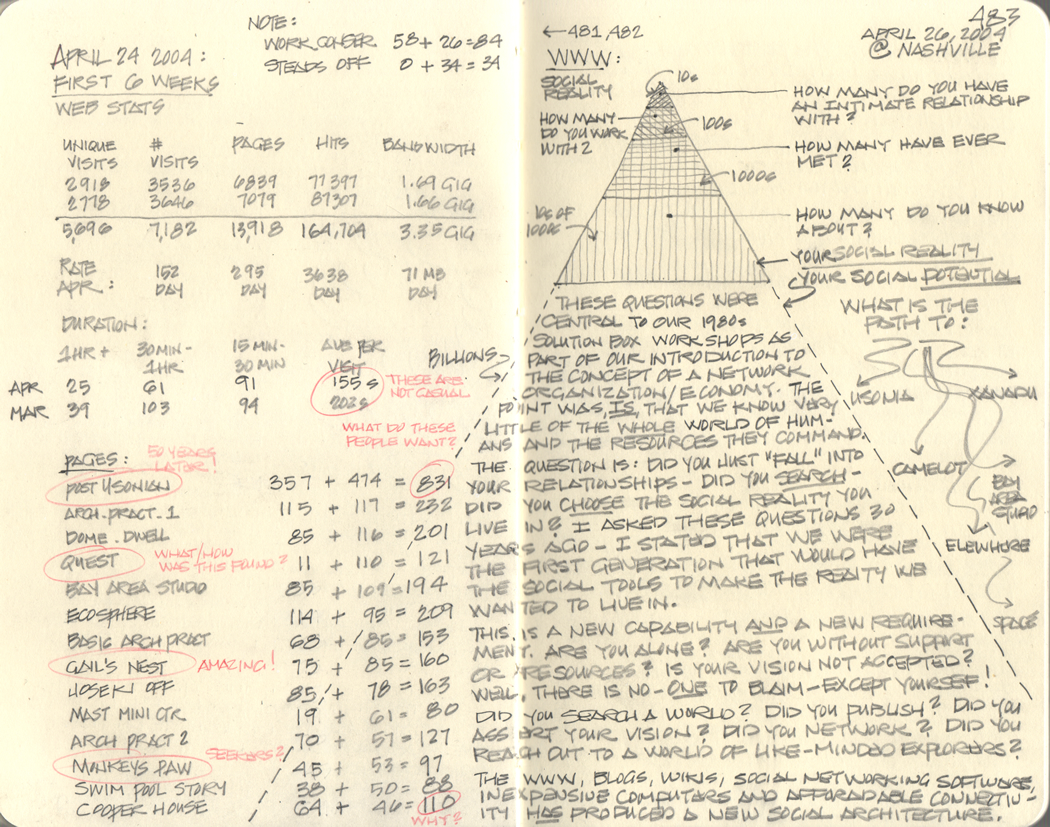 NOTE:
WORK CONSER 58 + 26 = 84
STEADS OFF 0 + 34 = 34
APRIL 24 2004:
FIRST 6 WEEKS
WEB STATS
UNIQUE VISITS # VISITS PAGES HITS BANDWIDTH
2918 3536 6839 77397 1.69 GIG
2778 3646 7079 87307 1.66 GIG
5,696 7,182 13,918 164,704 3.35 GIG
RATE 152 295 3638 71 MB
APR: DAY DAY DAY DAY
DURATION:
1HR + 30 MIN- 15 MIN- AVE PER
1HR 30 MIN VISIT
APR 25 61 91 155 s
MAR 39 103 94 203 s
THESE ARE
NOT CASUAL
WHAT DO THESE
PEOPLE WANT?
PAGES:
50 YEARS
LATOR!
POST USONIAN 357 + 474 = 831
ARCH. PRACT. 1 115 + 117 = 232
DOME. DWELL 85 + 116 = 201
QUEST WHAT/HOW WAS THIS FOUND? 11 + 110 = 121
BAY AREA STUDIO 85 + 109 = 194
ECOSPHERE 114 + 95 = 209
BASIC ARCH PRACT 68 + 85 = 153
GAIL'S NEST AMAZING! 75 + 85 = 160
HOSEKI OFF 85 + 78 = 163
MAST MINI CTR 19 + 61 = 80
ARCH PRACT 2 70 + 57 = 127
SEEKERS?
MONKEYS PAW 45 + 53 = 97
SWIM POOL STORY 38 + 50 = 88
COOPER HOUSE 64 + 46 = 110
WHY?
←481,482
483
APRIL 26, 2004
@ NASHVILLE
WWW:
SOCIAL
REALITY
10s
HOW MANY DO YOU HAVE
AN INTIMATE RELATIONSHIP
WITH?
HOW MANY
DO YOU WORK
WITH?
100s
HOW MANY HAVE EVER
MET?
1000s
10s OF
1000s
HOW MANY DO YOU KNOW
ABOUT?
YOUR SOCIAL REALITY
YOUR SOCIAL POTENTIAL
BILLIONS
WHAT IS THE
PATH TO:
USONIA
XANADU
CAMELOT
BAY
AREA
STUDIO
ELEWHERE
SPACE
THESE QUESTIONS WERE
CENTRAL TO OUR 1980s
SOLUTION BOX WORKSHOPS AS
PART OF OUR INTRODUCTION TO
THE CONCEPT OF A NETWORK
ORGANIZATION/ECONOMY. THE
POINT WAS, IS, THAT WE KNOW VARY
LITTLE OF THE WHOLE WORLD OF HUM-
ANS AND THE RESOURCES THEY COMMAND.
THE QUESTION IS: DID YOU JUST "FALL" INTO
YOUR RELATIONSHIPS - DID YOU SEARCH -
DID YOU CHOOSE THE SOCIAL REALITY YOU
LIVE IN? I ASKED THESE QUESTIONS 30
YEARS AGO - I STATED THAT WE WERE
THE FIRST GENERATION THAT WOULD HAVE
THE SOCIAL TOOLS TO MAKE THE REAITY WE
WANTED TO LIVE IN.
THIS IS A NEW CAPABILITY AND A NEW REQUIRE-
MENT. ARE YOU ALONE? ARE YOU WITHOUT SUPPORT
OR RESOURCES? IS YOUR VISION NOT ACCEPTED?
WELL, THERE IS NO-ONE TO BLAIM - EXCEPT YOURSEF!
DID YOU SEARCH A WORLD? DID YOU PUBLISH? DID YOU
ASSERT YOUR VISION? DID YOU NETWORK? DID YOU
REACH OUT TO A WORLD OF LIKE-MINDED EXPLORERS?
THE WWW, BLOGS, WIKIS, SOCIAL NETWORKING SOFTWARE,
INEXPENSIVE COMPUTARS AND AFFORDADABLE CONNECTIV-
ITY HAS PRODUCED A NEW SOCIAL ARCHITECTURE.